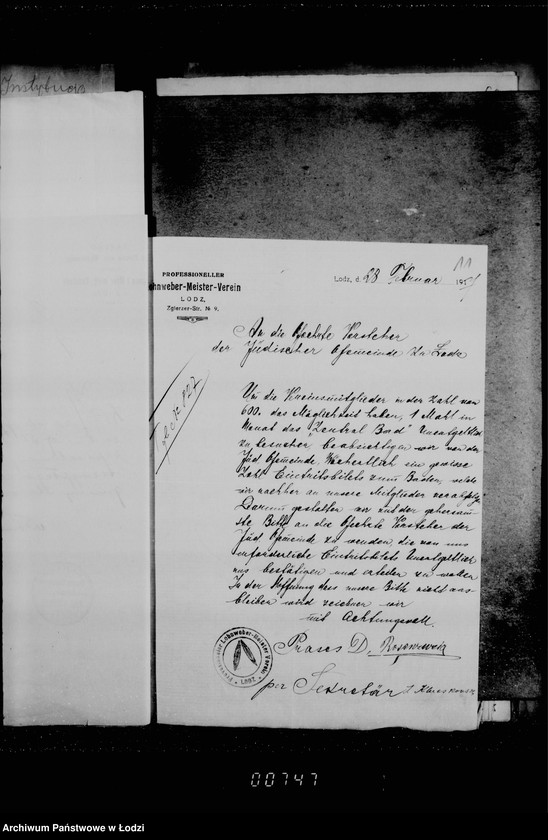 PROFESSIONELLER
Lohnweber-Meister-Verein
LODZ,
Zgierzer-Str. № 9.
Lodz, d. 28 Februar 191
11
An die Geehrte Vorsteher
der Jüdischer Gemeinde zu Lodz
Um die Vereinsmitglieder in der Zahl von
600. das Möglichkeit haben, 1 Mahl in
Monat das "Zentral Bad" Unentgeltlich
zu besuchen beabsichtigen wir von der
Jüd Gemeinde Wöchentlich ein gewisse
Zahl Eintritsbilete zum Baden, welche
wir nachher an unsere Mitglieder
Darum gestatten wir uns der gehorsam
ste Bitte an die Geehrte Vorsteher der
Jüd. Gemeinde zu wenden die von uns
erforderliche Eintritsbilete Unentgeltlich
uns bestätigen und erteilen zu wollen
In der Hoffnung dass unsere Bitte nicht aus
bleiben wird zeichnen wir
mit Achtungsvoll.
Präses D.
per Sekretär
Professioneller Lohnweber-Meister Verein
LODZ
00747
Archiwum Państwowe w Łodzi